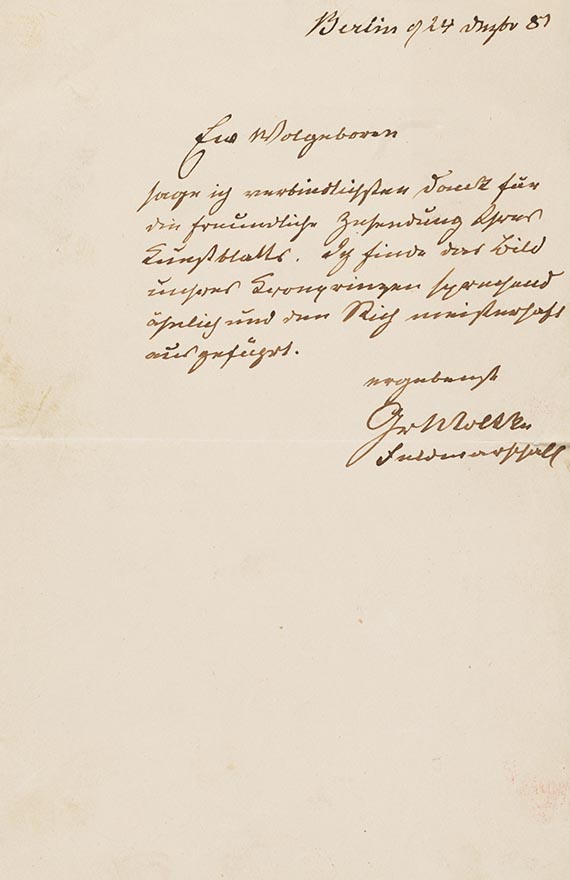 Berlin d 24 Dezbr 81
Ew Wolgeboren
sage ich verbindlichsten Dank für
die freundliche Zusendung Ihres
Kunstblatts. Ich finde das Bild
unsres Kronprinzen sprechend
ähnlich und den Stich meisterhaft
ausgeführt.
ergebenst
Gr Moltke
Feldmarschall